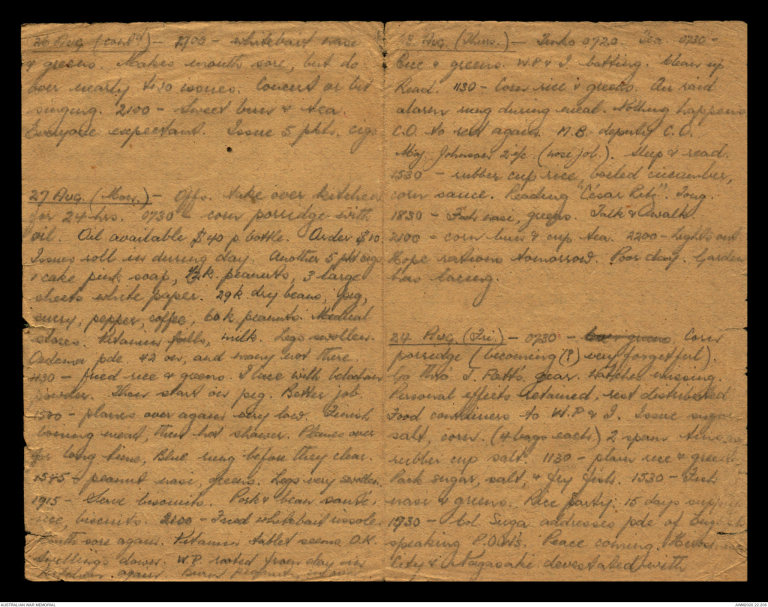 26 Aug (cont'd) — 1700 — whitebait nasi
& greens. Makes mouth sore, but do
over nearly issues. Concert or bit
singing. 2100 — Sweet buns & tea.
Everyone expectant. Issue 5 pkts. cigs
27 Aug. (Mon.) — Offs. take over kitchen
for 24 hrs. 0730 — corn porridge with
oil. Oil available $40 p bottle. Order $10
Issues roll in during day. Another 5 pkt cigs
1 cake pink soap, k. peanuts, 3 large
sheets white paper. 29k dry beans, pig,
curry, pepper, coffee, 60 k peanuts. Medical
stores. Vitamin pills, milk. Legs swollen.
Oedema pde. 42 on, and many not there.
1130 — fried rice & greens. I lace with
powder. Then start on pig. Better job
1500 — planes over again very low. Finish
boning meat, then hot shower. Planes over
for long time, Blue rung before they clear.
1545 — peanut nasi, greens. Legs very swollen
1915 — Slave biscuits. Pork & bean sauté,
rice, biscuits. 2100 — Fried whitebait rissole
Mouth sore again. Vitamin tablet seems O.K.
Swellings down. W.P. rooted from clay in
kitchen again.
23 Aug. (Thurs.) — Tenko 0720. Tea. 0730 —
Rice & greens. W.P. & I. batting. Clean up
Read. 1130 — Corn rice & greens. Air raid
alarm rung during meal. Nothing happens
C.O. to rest again. M.B. deputy C.O.
Maj. Johnson 2 i/c (nose job). Sleep & read.
1530 — rubber cup rice, boiled cucumber,
corn sauce. Reading "César Ritz". Long.
1830 — Fish nasi, greens. Talk & walk
2100 — corn bun & cup tea. 2200 — Lights out
Hope rations tomorrow. Poor day. Garden
has lacing.
24 Aug. (Fri.) — 0730 — Corn
porridge (becoming (?) very forgetful).
Go thro' J. Patt's gear. Watches missing.
Personal effects retained, rest distributed
Food containers to W.P. & I. Issue sugar
salt, corn. (4 bags each) 2 spam tins,
rubber cup salt. 1130 — plain rice & greens
Pack sugar, salt, & fry fish. 1530 — Fish
nasi & greens. Race party. 15 days supply
1730 — Col Suga addresses pde of English
speaking P.O.W's. Peace coming.
City & Nagasaki devastated with
AUSTRALIAN WAR MEMORIAL